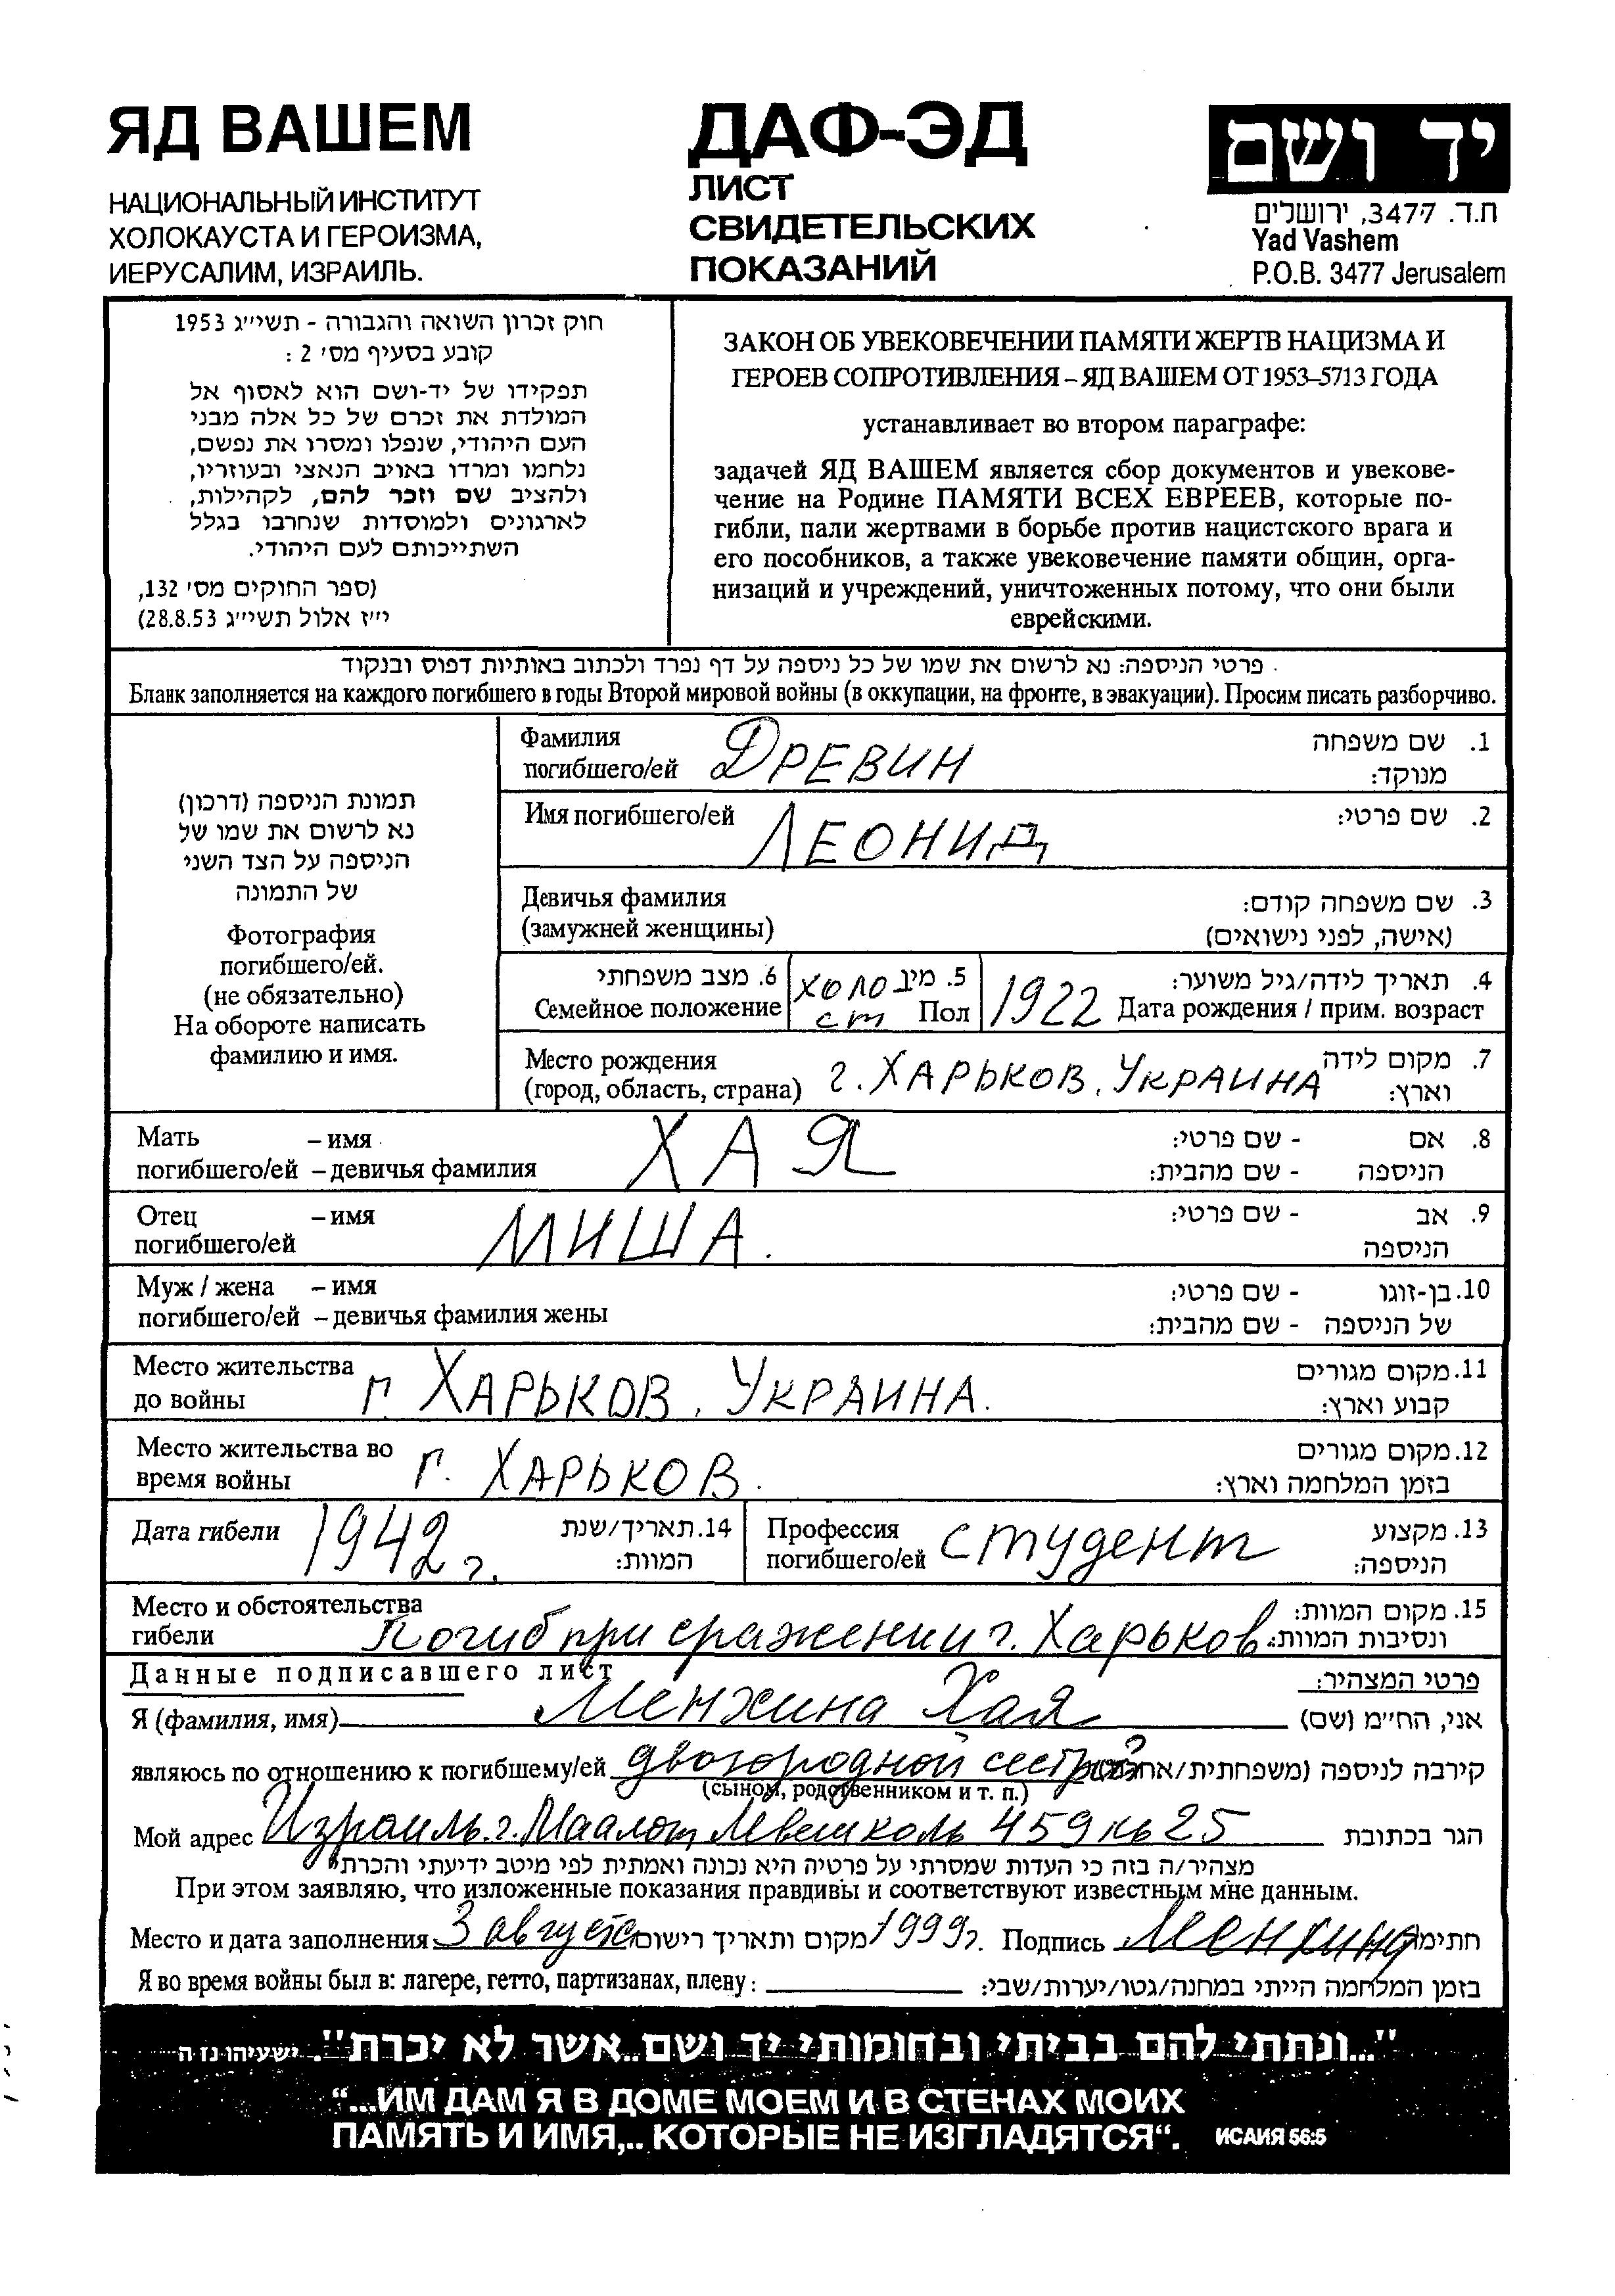 ЯД ВАШЕМ
НАЦИОНАЛЬНЫЙ ИНСТИТУТ
ХОЛОКАУСТА И ГЕРОИЗМА,
ИЕРУСАЛИМ, ИЗРАИЛЬ.
ДАФ-ЭД
ЛИСТ
СВИДЕТЕЛЬСКИХ
ПОКАЗАНИЙ
יד ושם
ת.ד. 3477, ירושלים
Yad Vashem
P.O.B. 3477 Jerusalem
חוק זכרון השואה והגבורה - תשי״ג 1953
קובע בסעיף מס׳ 2 :
תפקידו של יד-ושם הוא לאסוף אל
המולדת את זכרם של כל אלה מבני
העם היהודי, שנפלו ומסרו את נפשם,
נלחמו ומרדו באויב הנאצי ובעוזריו,
ולהציב שם וזכר להם, לקהילות,
לארגונים ולמוסדות שנחרבו בגלל
השתייכותם לעם היהודי.
(ספר החוקים מס׳ 132,
י״ז אלול תשי״ג 28.8.53)
ЗАКОН ОБ УВЕКОВЕЧЕНИИ ПАМЯТИ ЖЕРТВ НАЦИЗМА И
ГЕРОЕВ СОПРОТИВЛЕНИЯ – ЯД ВАШЕМ ОТ 1953–5713 ГОДА
устанавливает во втором параграфе:
задачей ЯД ВАШЕМ является сбор документов и увекове-
чение на Родине ПАМЯТИ ВСЕХ ЕВРЕЕВ, которые по-
гибли, пали жертвами в борьбе против нацистского врага и
его пособников, а также увековечение памяти общин, орга-
низаций и учреждений, уничтоженных потому, что они были
еврейскими.
פרטי הניספה: נא לרשום את שמו של כל ניספה על דף נפרד ולכתוב באותיות דפוס ובנקוד
Бланк заполняется на каждого погибшего в годы Второй мировой войны (в оккупации, на фронте, в эвакуации). Просим писать разборчиво.
תמונת הניספה (דרכון)
נא לרשום את שמו של
הניספה על הצד השני
של התמונה
Фотография
погибшего/ей.
(не обязательно)
На обороте написать
фамилию и имя.
Фамилия ДРЕВИН 1. שם משפחה
погибшего/ей מנוקד:
Имя погибшего/ей ЛЕОНИД 2. שם פרטי:
Девичья фамилия 3. שם משפחה קודם:
(замужней женщины) (אישה, לפני נישואים)
6. מצב משפחתי холо 5. מין 1922 4. תאריך לידה/גיל משוער:
Семейное положение ст Пол Дата рождения / прим. возраст
Место рождения г. ХАРЬКОВ, УКРАИНА 7. מקום לידה
(город, область, страна) וארץ:
Мать – имя ХАЯ 8. אם - שם פרטי:
погибшего/ей – девичья фамилия הניספה - שם מהבית:
Отец – имя МИША. 9. אב - שם פרטי:
погибшего/ей הניספה
Муж / жена – имя 10. בן-זוגו - שם פרטי:
погибшего/ей – девичья фамилия жены של הניספה - שם מהבית:
Место жительства г. ХАРЬКОВ, УКРАИНА. 11. מקום מגורים
до войны קבוע וארץ:
Место жительства во г. ХАРЬКОВ. 12. מקום מגורים
время войны בזמן המלחמה וארץ:
Дата гибели 1942 г. 14. תאריך/שנת Профессия студент 13. מקצוע
המוות: погибшего/ей הניספה:
Место и обстоятельства 15. מקום המוות:
гибели Погиб при сражении г. Харьков ונסיבות המוות:
Данные подписавшего лист פרטי המצהיר:
Я (фамилия, имя) Менхина Хая אני, הח״מ (שם)
являюсь по отношению к погибшему/ей двоюродной сестрой קירבה לניספה (משפחתית/אחרת)
(сыном, родственником и т. п.)
Мой адрес Израиль. г. Маалот Левешколь 459 кв 25 הגר בכתובת
מצהיר/ה בזה כי העדות שמסרתי על פרטיה היא נכונה ואמתית לפי מיטב ידיעתי והכרתי
При этом заявляю, что изложенные показания правдивы и соответствуют известным мне данным.
Место и дата заполнения 3 августа מקום ותאריך רישום 1999г. Подпись Менхина חתימה
Я во время войны был в: лагере, гетто, партизанах, плену: בזמן המלחמה הייתי במחנה/גטו/יערות/שבי:
"...ונתתי להם בביתי ובחומותי יד ושם...אשר לא יכרת". ישעיהו נו ה
“...ИМ ДАМ Я В ДОМЕ МОЕМ И В СТЕНАХ МОИХ
ПАМЯТЬ И ИМЯ,.. КОТОРЫЕ НЕ ИЗГЛАДЯТСЯ“. ИСАИЯ 56:5